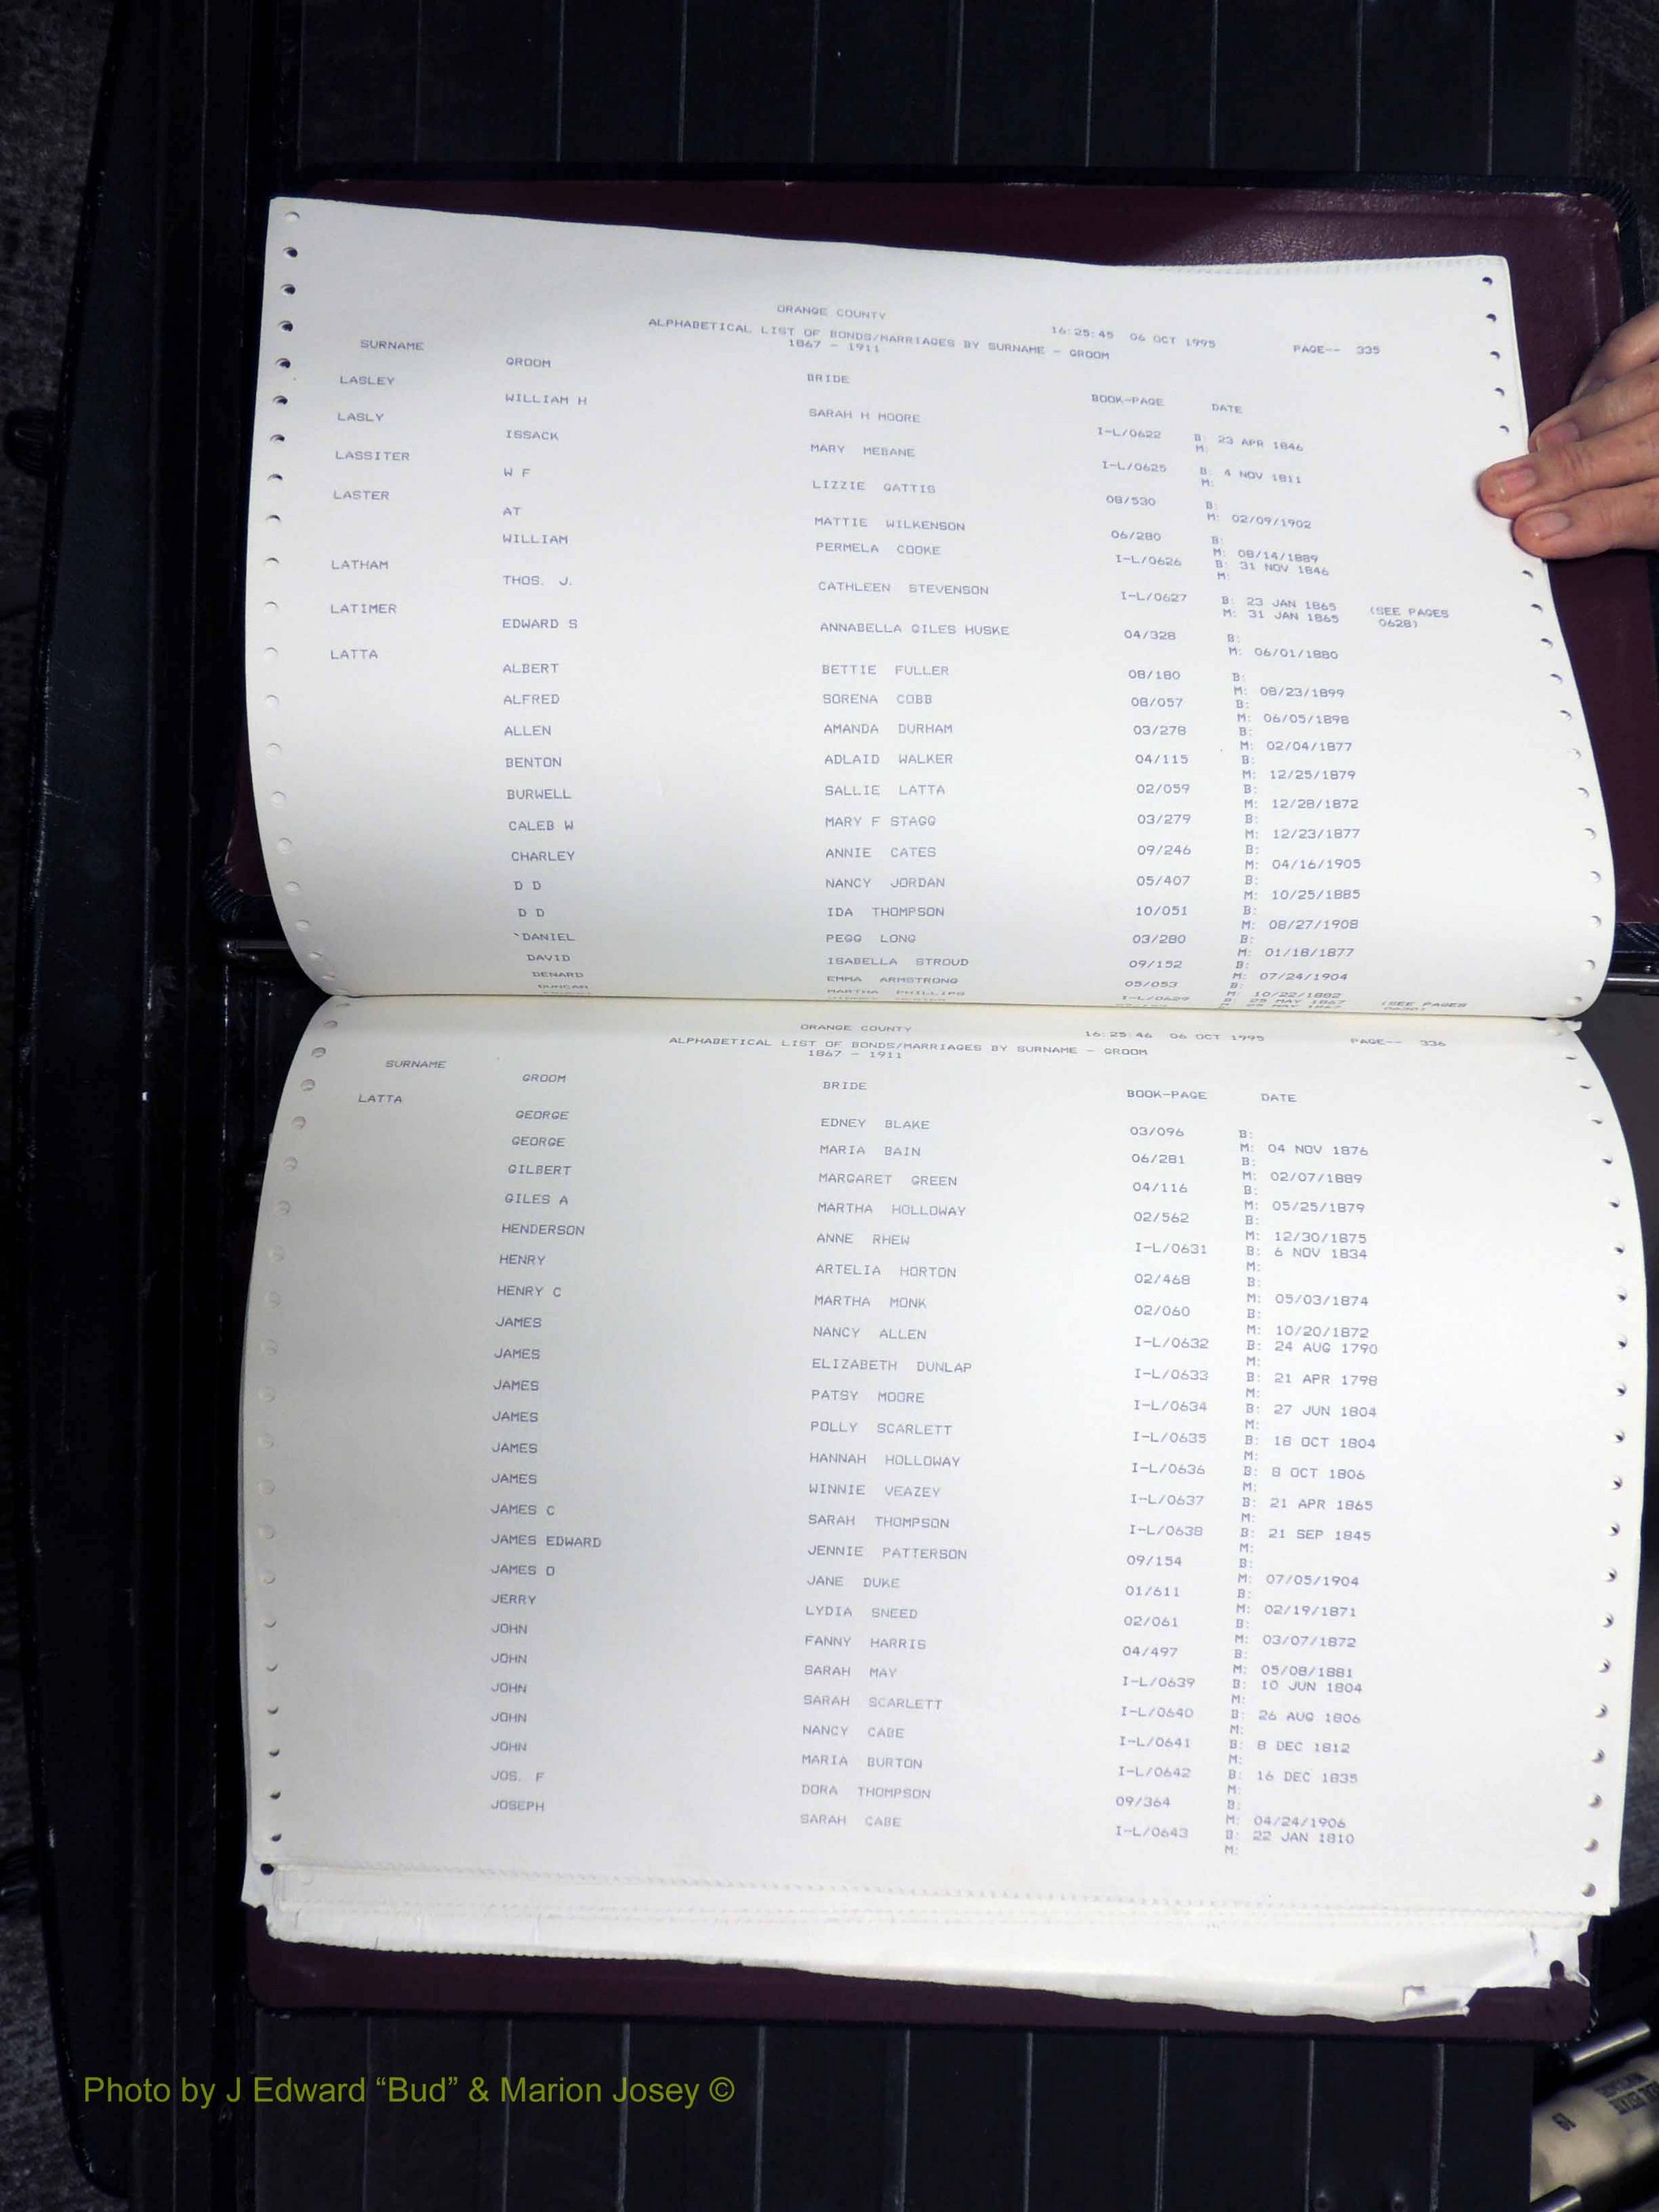 ORANGE COUNTY 16:25:45 06 OCT 1995 PAGE-- 335
ALPHABETICAL LIST OF BONDS/MARRIAGES BY SURNAME - GROOM
1867 - 1911
SURNAME GROOM BRIDE BOOK-PAGE DATE
LASLEY WILLIAM H SARAH H MOORE I-L/0622 B: 23 APR 1846
M:
LASLY ISSACK MARY MEBANE I-L/0625 B: 4 NOV 1811
M:
LASSITER W F LIZZIE GATTIS 08/530 B:
M: 02/09/1902
LASTER AT MATTIE WILKENSON 06/280 B:
M: 08/14/1889
WILLIAM PERMELA COOKE I-L/0626 B: 31 NOV 1846
M:
LATHAM THOS. J. CATHLEEN STEVENSON I-L/0627 B: 23 JAN 1865 (SEE PAGES
M: 31 JAN 1865 0628)
LATIMER EDWARD S ANNABELLA GILES HUSKE 04/328 B:
M: 06/01/1880
LATTA ALBERT BETTIE FULLER 08/180 B:
M: 08/23/1899
ALFRED SORENA COBB 08/057 B:
M: 06/05/1898
ALLEN AMANDA DURHAM 03/278 B:
M: 02/04/1877
BENTON ADLAID WALKER 04/115 B:
M: 12/25/1879
BURWELL SALLIE LATTA 02/059 B:
M: 12/28/1872
CALEB W MARY F STAGG 03/279 B:
M: 12/23/1877
CHARLEY ANNIE CATES 09/246 B:
M: 04/16/1905
D D NANCY JORDAN 05/407 B:
M: 10/25/1885
D D IDA THOMPSON 10/051 B:
M: 08/27/1908
`DANIEL PEGG LONG 03/280 B:
M: 01/18/1877
DAVID ISABELLA STROUD 09/152 B:
M: 07/24/1904
DENARD EMMA ARMSTRONG 05/053 B:
M: 10/22/1882
DUNCAN MARTHA PHILLIPS I-L/0629 B: 25 MAY 1867 (SEE PAGES
ORANGE COUNTY 16:25:46 06 OCT 1995 PAGE-- 336
ALPHABETICAL LIST OF BONDS/MARRIAGES BY SURNAME - GROOM
1867 - 1911
SURNAME GROOM BRIDE BOOK-PAGE DATE
LATTA GEORGE EDNEY BLAKE 03/096 B:
M: 04 NOV 1876
GEORGE MARIA BAIN 06/281 B:
M: 02/07/1889
GILBERT MARGARET GREEN 04/116 B:
M: 05/25/1879
GILES A MARTHA HOLLOWAY 02/562 B:
M: 12/30/1875
HENDERSON ANNE RHEW I-L/0631 B: 6 NOV 1834
M:
HENRY ARTELIA HORTON 02/468 B:
M: 05/03/1874
HENRY C MARTHA MONK 02/060 B:
M: 10/20/1872
JAMES NANCY ALLEN I-L/0632 B: 24 AUG 1790
M:
JAMES ELIZABETH DUNLAP I-L/0633 B: 21 APR 1798
M:
JAMES PATSY MOORE I-L/0634 B: 27 JUN 1804
M:
JAMES POLLY SCARLETT I-L/0635 B: 18 OCT 1804
M:
JAMES HANNAH HOLLOWAY I-L/0636 B: 8 OCT 1806
M:
JAMES WINNIE VEAZEY I-L/0637 B: 21 APR 1865
M:
JAMES C SARAH THOMPSON I-L/0638 B: 21 SEP 1845
M:
JAMES EDWARD JENNIE PATTERSON 09/154 B:
M: 07/05/1904
JAMES O JANE DUKE 01/611 B:
M: 02/19/1871
JERRY LYDIA SNEED 02/061 B:
M: 03/07/1872
JOHN FANNY HARRIS 04/497 B:
M: 05/08/1881
JOHN SARAH MAY I-L/0639 B: 10 JUN 1804
M:
JOHN SARAH SCARLETT I-L/0640 B: 26 AUG 1806
M:
JOHN NANCY CABE I-L/0641 B: 8 DEC 1812
M:
JOHN MARIA BURTON I-L/0642 B: 16 DEC 1835
M:
JOS. F DORA THOMPSON 09/364 B:
M: 04/24/1906
JOSEPH SARAH CABE I-L/0643 B: 22 JAN 1810
M:
Photo by J Edward “Bud” & Marion Josey ©